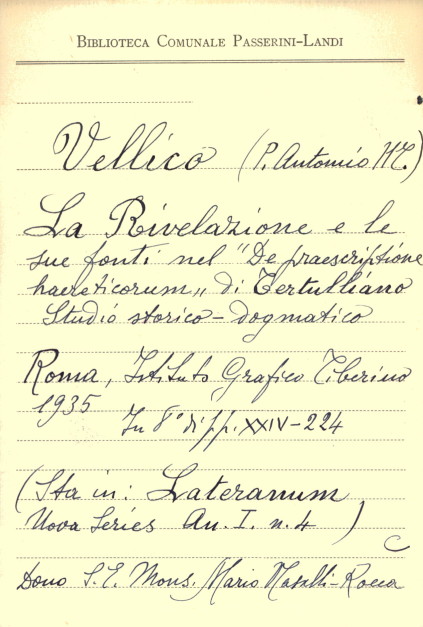 BIBLIOTECA COMUNALE PASSERINI-LANDI
Vellico (P. Antonio
La Rivelazione e le
sue fonti nel "De praescriptione
haereticorum„ di Tertulliano
Studio storico-dogmatico
Roma, Istituto Grafico Tiberino
1935
In 8° di pp. XXIV-224
(Sta in: Lateranum
Nova Series An. I. n. 4 )
C
Dono S. E. Mons. Mario Nasalli-Rocca